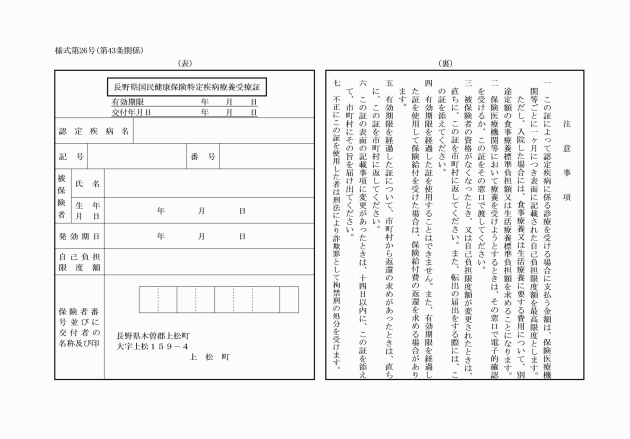 様式第26号(第43条関係)
(表)
長野県国民健康保険特定疾病療養受療証
有効期限 年 月 日
交付年月日 年 月 日
認定疾病名
記号
番号
被保険者
氏名
生年月日
年 月 日
発効期日
年 月 日
自己負担
限度額
保険者番
号並びに
交付者の
名称及び印
長野県木曽郡上松町
大字上松159-4
上松町
(裏)
注意事項
一 この証によって認定疾病に係る診療を受ける場合に支払う金額は、保険医療機
関等ごとに一ヶ月につき表面に記載された自己負担限度額を最高限度とします。
ただし、入院した場合には、食事療養又は生活療養に要する費用について、別
途定額の食事療養標準負担額又は生活療養標準負担額を求めることになります。
二 保険医療機関等において療養を受けようとするときは、その窓口で電子的確認
を受けるか、この証をその窓口で渡してください。
三 被保険者の資格がなくなったとき、又は自己負担限度額が変更されたときは、
直ちに、この証を市町村に返してください。また、転出の届出をする際には、こ
の証を添えてください。
四 有効期限を経過した証を使用することはできません。また、有効期限を経過し
た証を使用して保険給付を受けた場合は、保険給付費の返還を求める場合があり
ます。
五 有効期限を経過した証について、市町村から返還の求めがあったときは、直ち
に、この証を市町村に返してください。
六 この証の表面の記載事項に変更があったときは、十四日以内に、この証を添え
て、市町村にその旨を届け出てください。
七 不正にこの証を使用した者は刑法により詐欺罪として拘禁刑の処分を受けます。